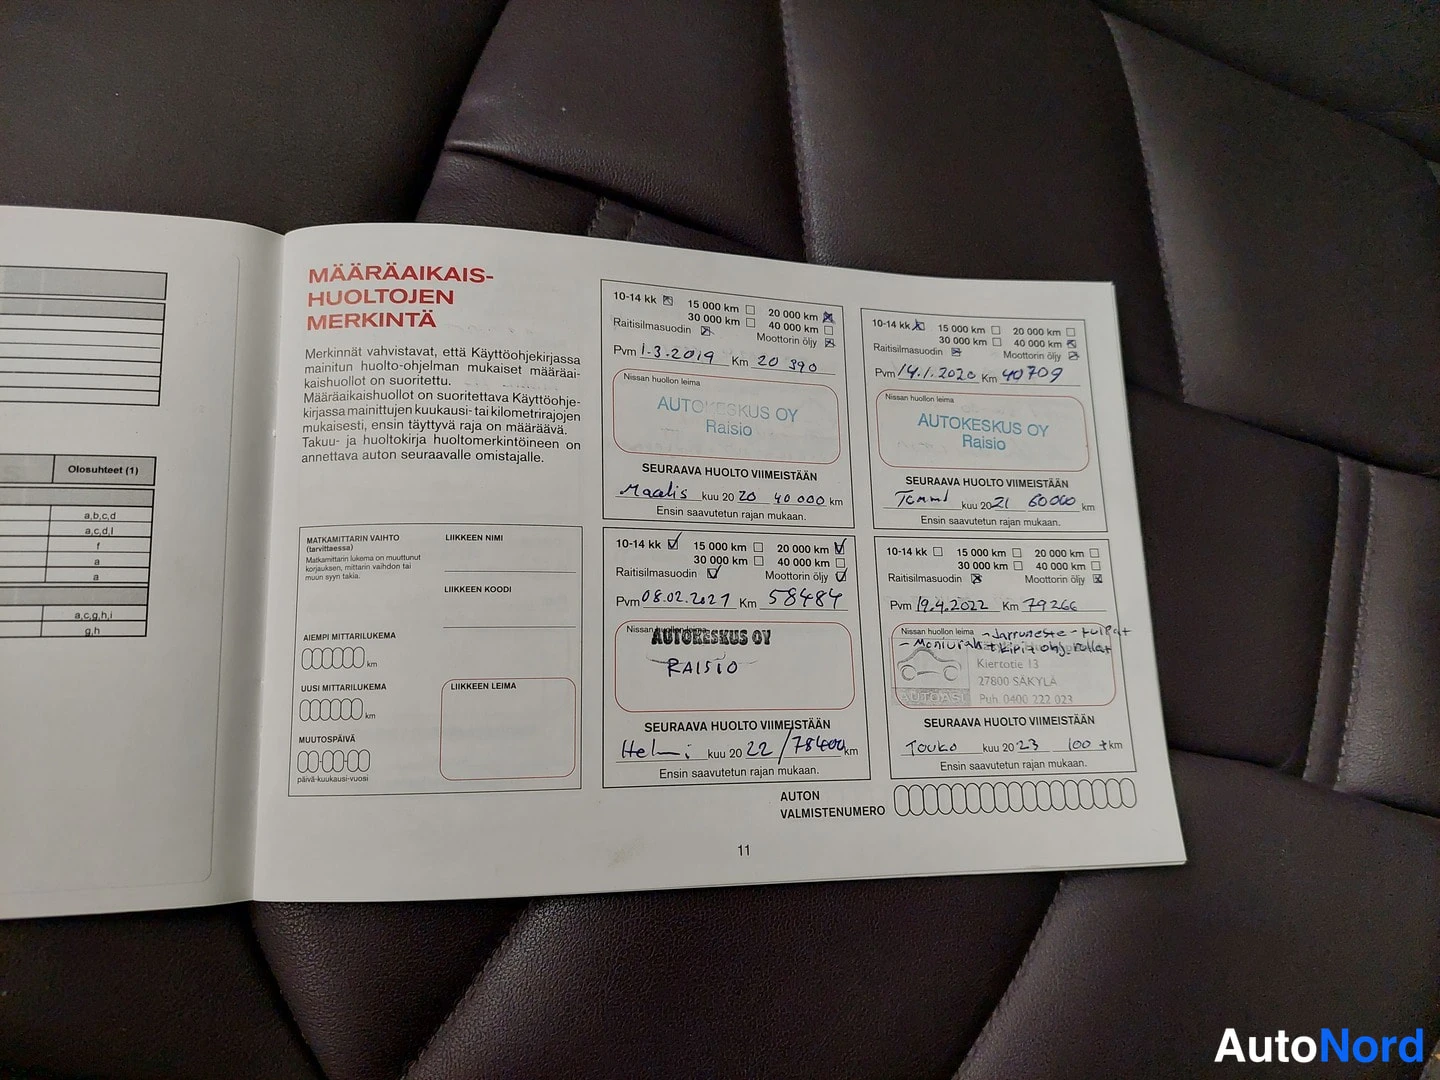 Olosuhteet (1)
a,b,c,d
a,c,d,l
f
a
a
a,c,g,h,i
g,h
MÄÄRÄAIKAIS-
HUOLTOJEN
MERKINTÄ
Merkinnät vahvistavat, että Käyttöohjekirjassa
mainitun huolto-ohjelman mukaiset määräai-
kaishuollot on suoritettu.
Määräaikaishuollot on suoritettava Käyttöohje-
kirjassa mainittujen kuukausi- tai kilometrirajojen
mukaisesti, ensin täyttyvä raja on määräävä.
Takuu- ja huoltokirja huoltomerkintöineen on
annettava auton seuraavalle omistajalle.
MATKAMITTARIN VAIHTO
(tarvittaessa)
Matkamittarin lukema on muuttunut
korjauksen, mittarin vaihdon tai
muun syyn takia.
AIEMPI MITTARILUKEMA
km
UUSI MITTARILUKEMA
km
MUUTOSPÄIVÄ
päivä-kuukausi-vuosi
LIIKKEEN NIMI
LIIKKEEN KOODI
LIIKKEEN LEIMA
10-14 kk 15 000 km 20 000 km
30 000 km 40 000 km
Raitisilmasuodin Moottorin öljy
Pvm 1.3.2019 Km 20 390
Nissan huollon leima
AUTOKESKUS OY
Raisio
SEURAAVA HUOLTO VIIMEISTÄÄN
Maalis kuu 20 20 40 000 km
Ensin saavutetun rajan mukaan.
10-14 kk 15 000 km 20 000 km
30 000 km 40 000 km
Raitisilmasuodin Moottorin öljy
Pvm 14.1.2020 Km 40709
Nissan huollon leima
AUTOKESKUS OY
Raisio
SEURAAVA HUOLTO VIIMEISTÄÄN
Tammi kuu 2021 60000 km
Ensin saavutetun rajan mukaan.
10-14 kk 15 000 km 20 000 km
30 000 km 40 000 km
Raitisilmasuodin Moottorin öljy
Pvm 08.02.2021 Km 58484
Nissan huollon leima
AUTOKESKUS OY
RAISIO
SEURAAVA HUOLTO VIIMEISTÄÄN
Helmi kuu 20 22 / 78400 km
Ensin saavutetun rajan mukaan.
10-14 kk 15 000 km 20 000 km
30 000 km 40 000 km
Raitisilmasuodin Moottorin öljy
Pvm 19.4.2022 Km 79266
Nissan huollon leima - Jarruneste - tulpat
- Moniurah + kipinohj. rullat
Kiertotie 13
27800 SÄKYLÄ
AUTOASI Puh. 0400 222 023
SEURAAVA HUOLTO VIIMEISTÄÄN
Touko kuu 20 23 100 t km
Ensin saavutetun rajan mukaan.
AUTON
VALMISTENUMERO
11
AutoNord